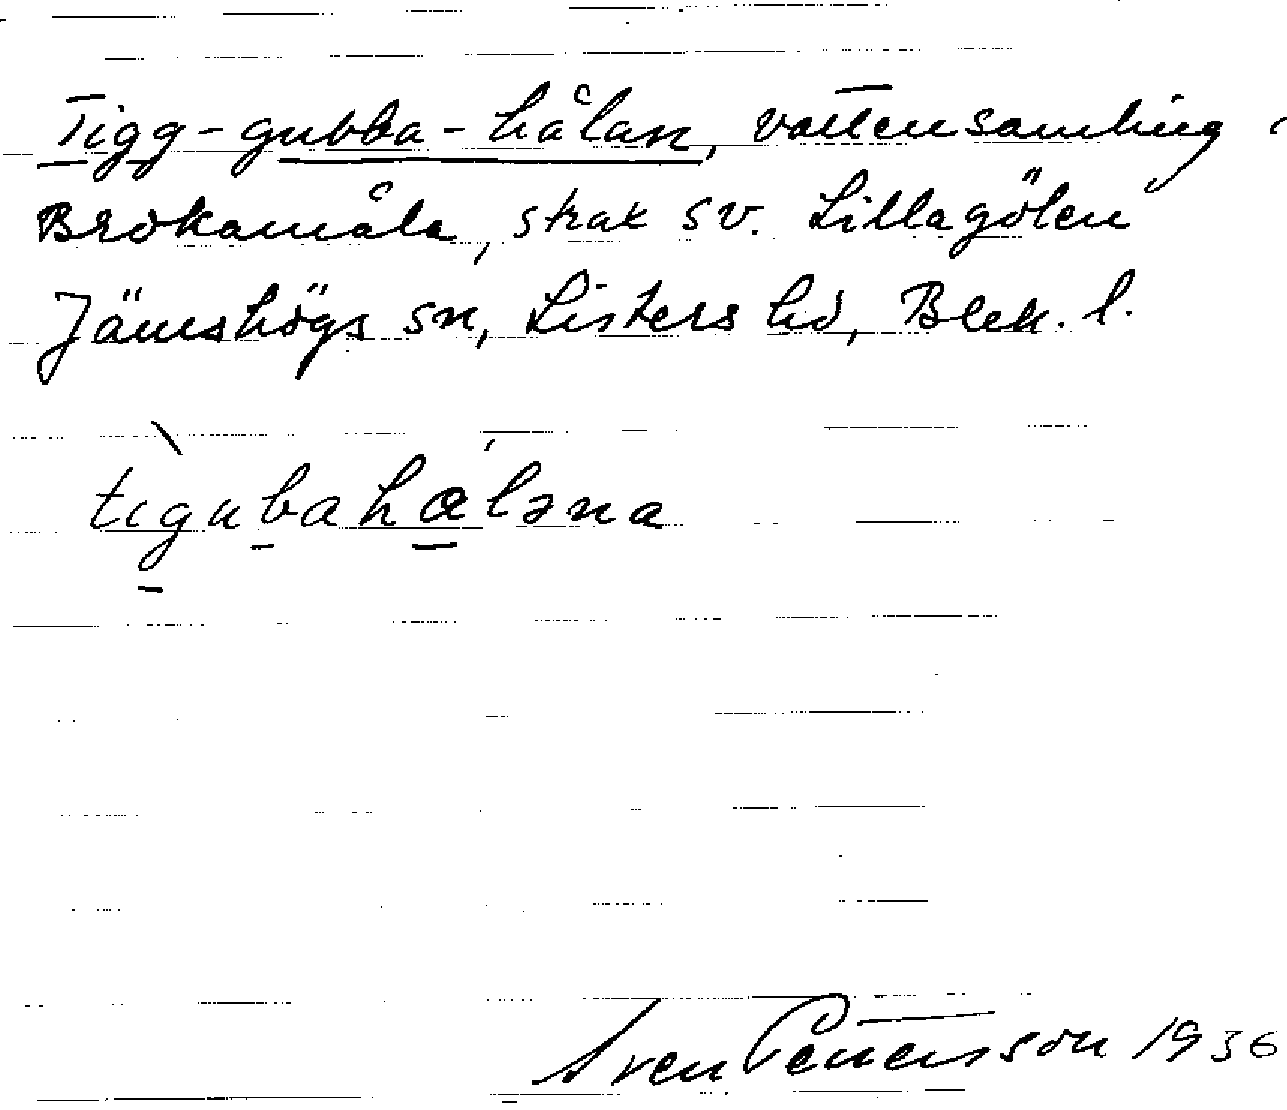 Tigg-gubba-hålan, vattensamling i
Brokamåla, strax sv. Lillagölen
Jämshögs sn, Listers hd, Blek. l.
tigubahaləna
Sven Petersson 1936